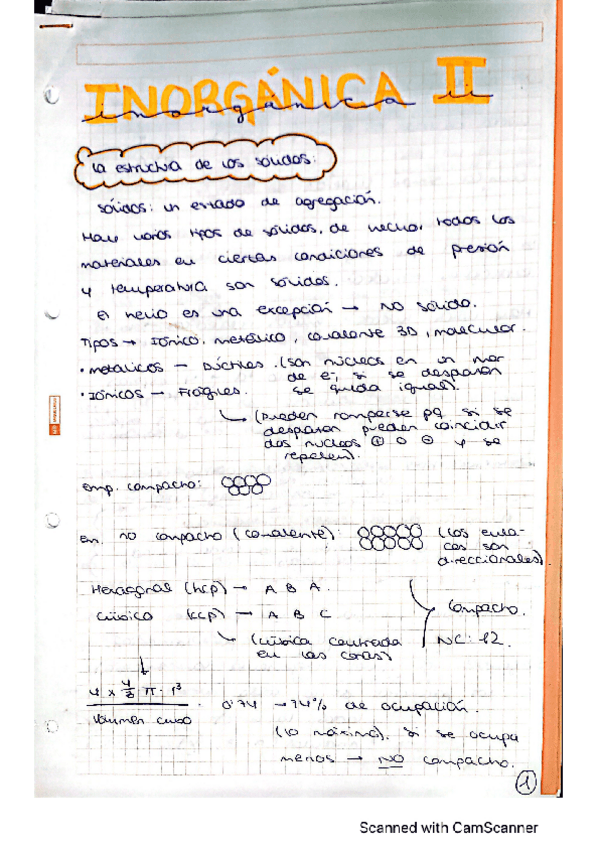 INORGÁNICA II
inorgánica II
La estructura de los sólidos:
Sólidos: un estado de agregación.
Hay varios tipos de sólidos, de hecho, todos los
materiales en ciertas condiciones de presión
y temperatura son sólidos.
El helio es una excepción → NO sólido.
Tipos → Iónico, metálico, covalente 3D, molecular.
• metálicos → Dúctiles. (son núcleos en un mar
de e⁻, si se desplazan
se queda igual).
• Iónicos → Frágiles.
(Pueden romperse pq si se
desplazan pueden coincidir
dos núcleos ⊕ o ⊖ y se
repelen).
emp. compacto:
Em. no compacto (covalente): (Los enla-
ces son
direccionales).
Hexagonal (hcp) → A B A.
Cúbica (ccp) → A B C
Compacto.
NC: 12.
(cúbica centrada
en las caras)
4 x 4/3 π · r³
Volumen cubo
0'74 → 74% de ocupación.
(lo máximo). Si se ocupa
menos → NO compacto.
1
Scanned with CamScanner